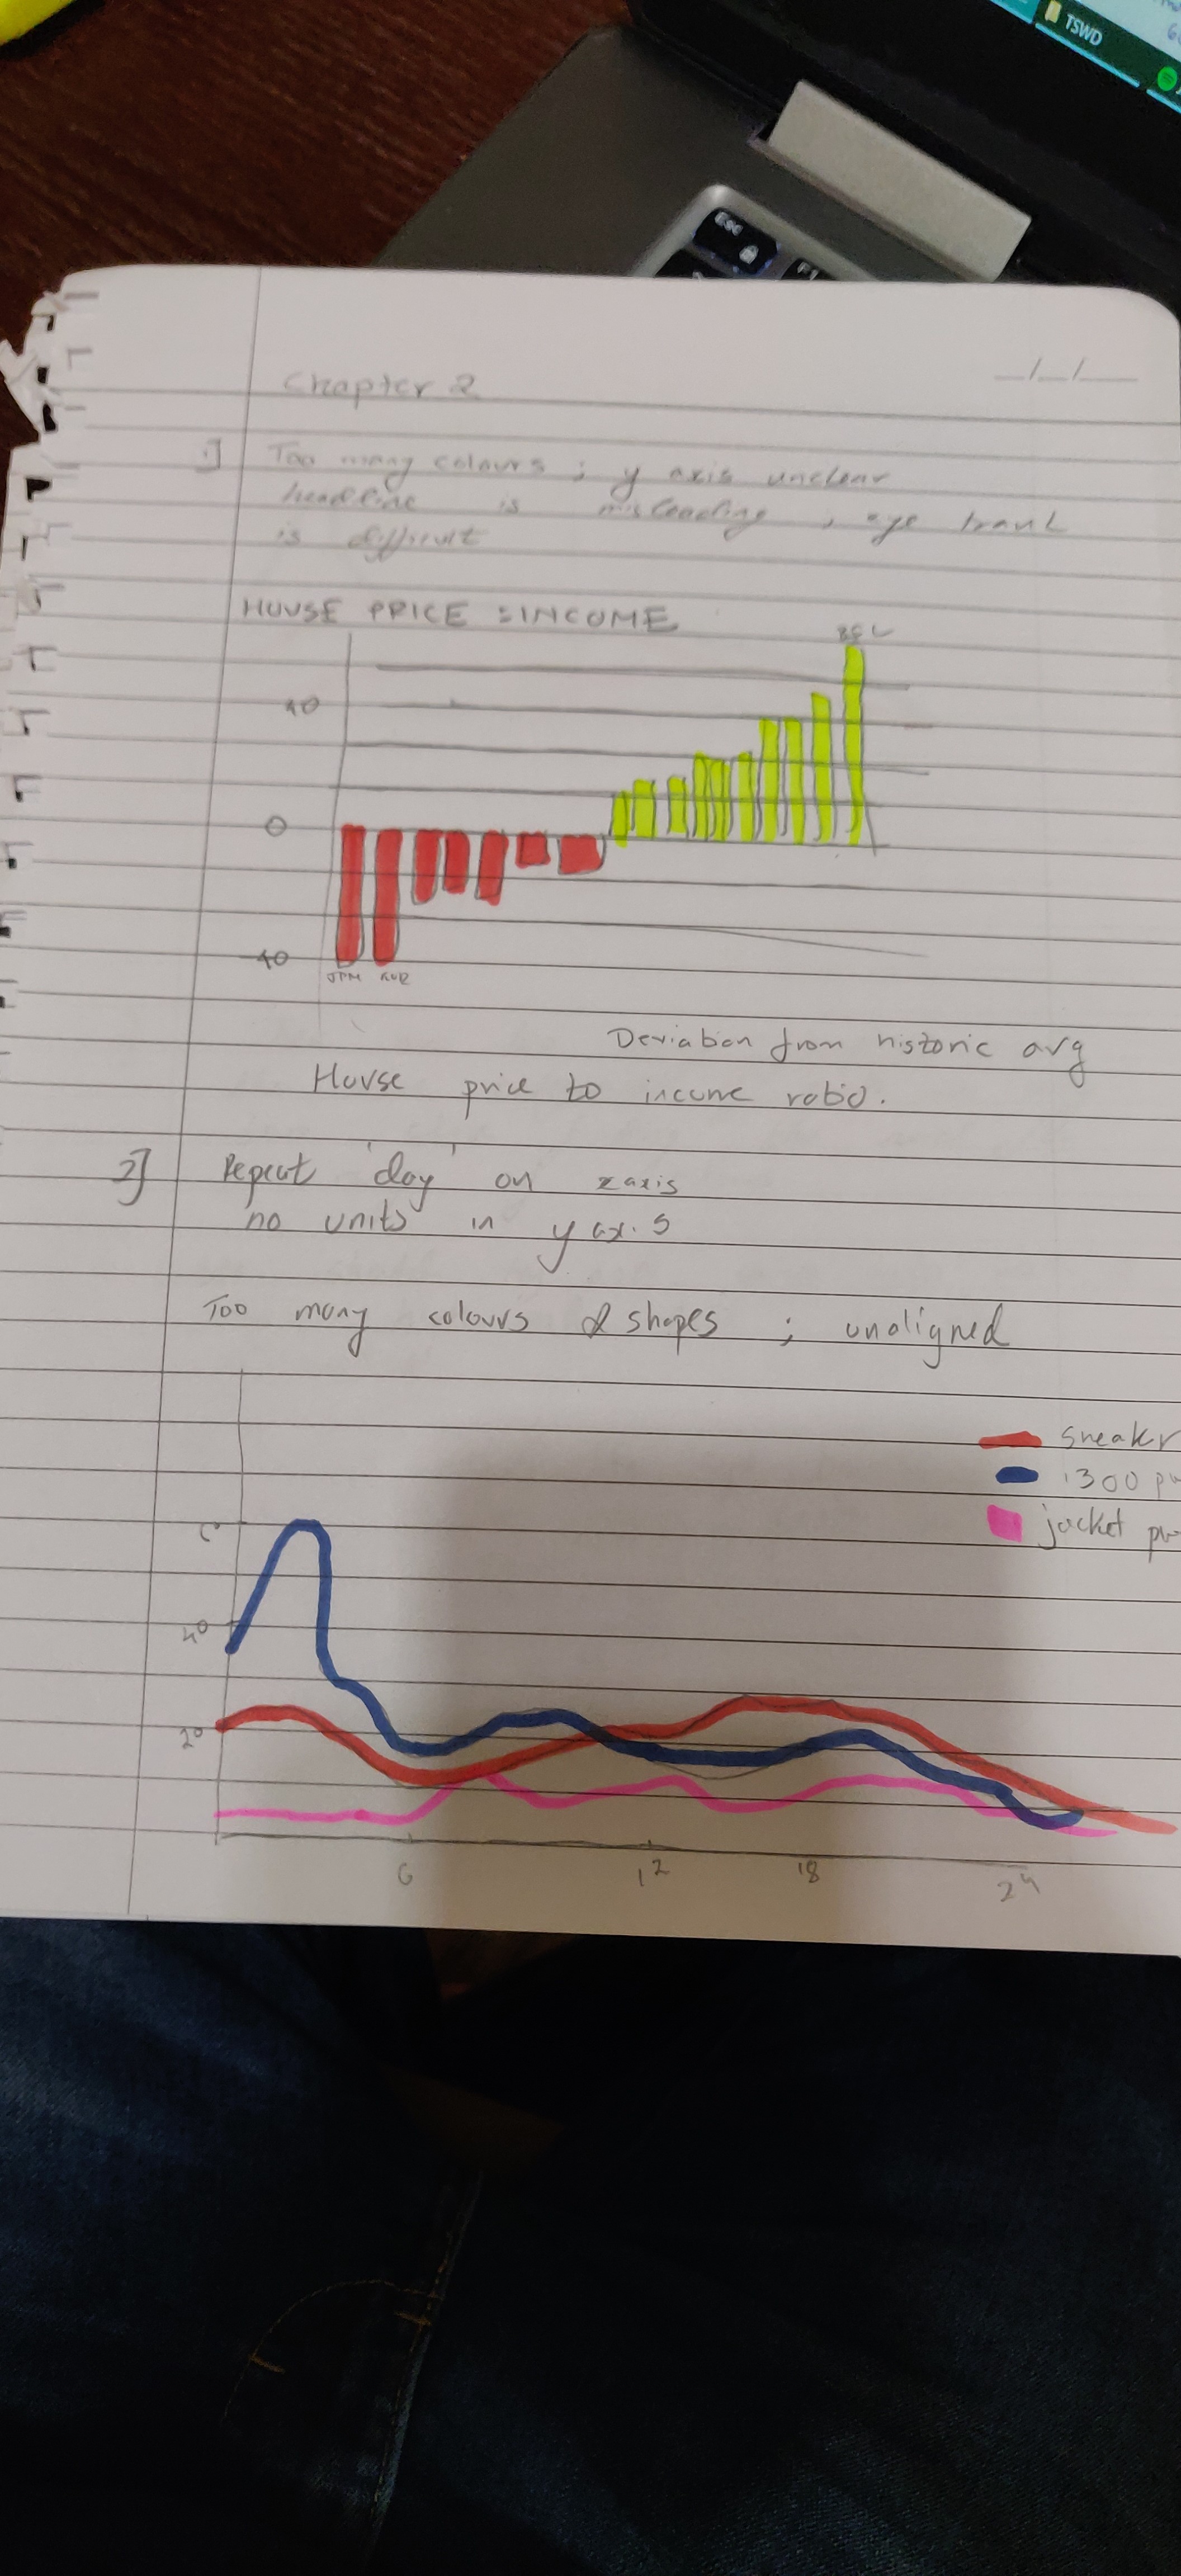 TSWD
esc
F1
Chapter 2
1] Too many colours ; y axis unclear
headline is misleading , eye travel
is difficult
HOUSE PRICE : INCOME
40
0
-40
JPN
Deviation from historic avg
House price to income ratio.
2] Repeat 'day' on x axis
no units in y axis
Too many colours & shapes ; unaligned
sneakr
1300
jacket
40
20
6 12 18 24